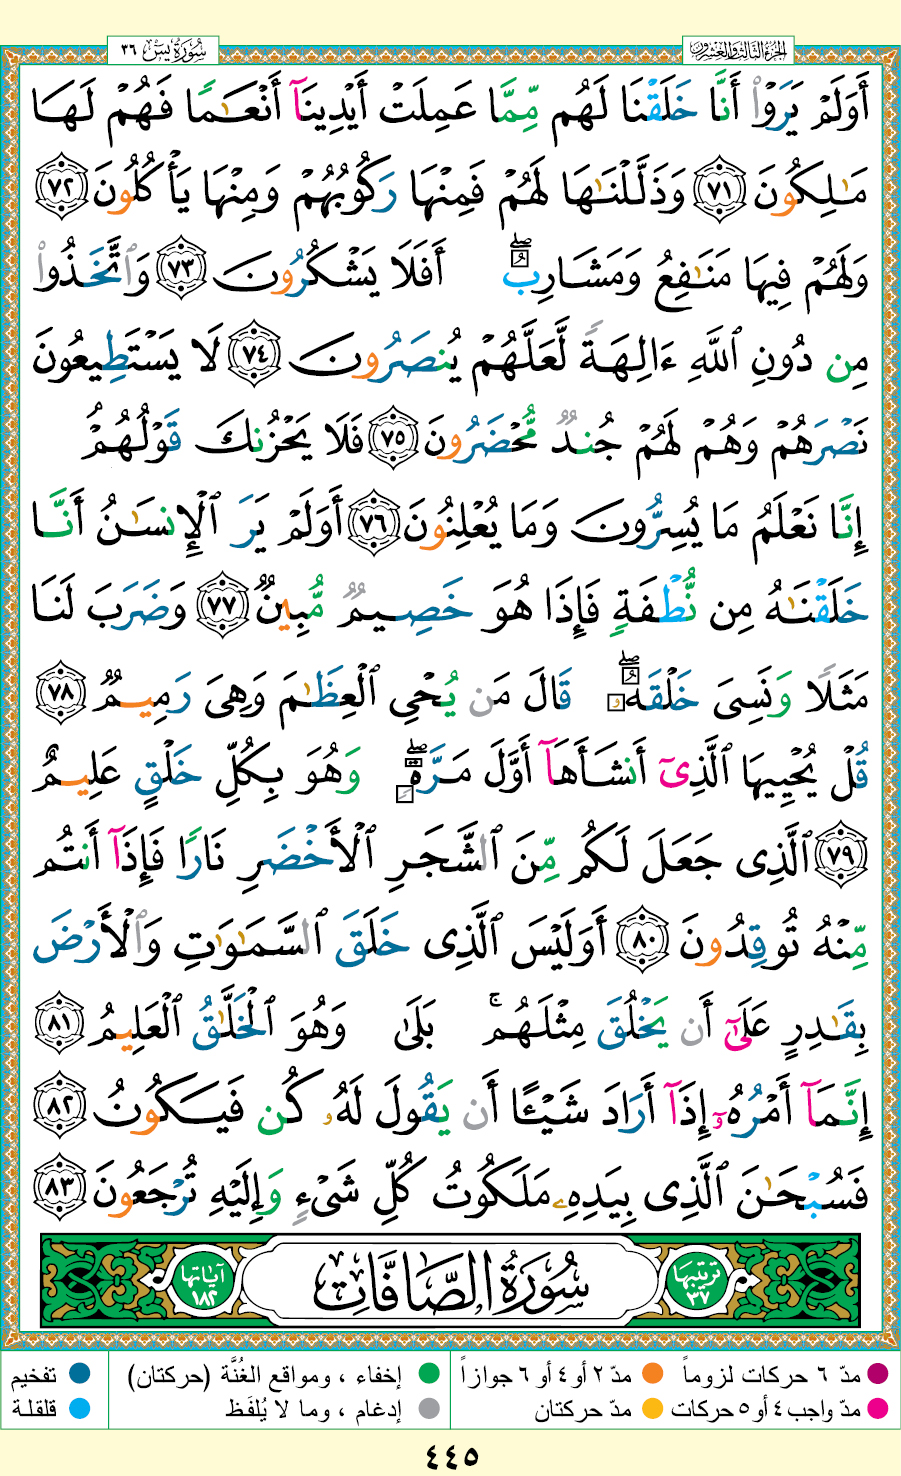 سُورَةُ يسٓ ٣٦
الجزء الثالث والعشرون
أَوَلَمْ يَرَوْا۟ أَنَّا خَلَقْنَا لَهُم مِّمَّا عَمِلَتْ أَيْدِينَآ أَنْعَـٰمًا فَهُمْ لَهَا
مَـٰلِكُونَ ٧١ وَذَلَّلْنَـٰهَا لَهُمْ فَمِنْهَا رَكُوبُهُمْ وَمِنْهَا يَأْكُلُونَ ٧٢
وَلَهُمْ فِيهَا مَنَـٰفِعُ وَمَشَارِبُ ۖ أَفَلَا يَشْكُرُونَ ٧٣ وَٱتَّخَذُوا۟
مِن دُونِ ٱللَّهِ ءَالِهَةً لَّعَلَّهُمْ يُنصَرُونَ ٧٤ لَا يَسْتَطِيعُونَ
نَصْرَهُمْ وَهُمْ لَهُمْ جُندٌ مُّحْضَرُونَ ٧٥ فَلَا يَحْزُنكَ قَوْلُهُمْ
إِنَّا نَعْلَمُ مَا يُسِرُّونَ وَمَا يُعْلِنُونَ ٧٦ أَوَلَمْ يَرَ ٱلْإِنسَـٰنُ أَنَّا
خَلَقْنَـٰهُ مِن نُّطْفَةٍ فَإِذَا هُوَ خَصِيمٌ مُّبِينٌ ٧٧ وَضَرَبَ لَنَا
مَثَلًا وَنَسِىَ خَلْقَهُۥ ۖ قَالَ مَن يُحْىِ ٱلْعِظَـٰمَ وَهِىَ رَمِيمٌ ٧٨
قُلْ يُحْيِيهَا ٱلَّذِىٓ أَنشَأَهَآ أَوَّلَ مَرَّةٍ ۖ وَهُوَ بِكُلِّ خَلْقٍ عَلِيمٌ
٧٩ ٱلَّذِى جَعَلَ لَكُم مِّنَ ٱلشَّجَرِ ٱلْأَخْضَرِ نَارًا فَإِذَآ أَنتُم
مِّنْهُ تُوقِدُونَ ٨٠ أَوَلَيْسَ ٱلَّذِى خَلَقَ ٱلسَّمَـٰوَٰتِ وَٱلْأَرْضَ
بِقَـٰدِرٍ عَلَىٰٓ أَن يَخْلُقَ مِثْلَهُم ۚ بَلَىٰ وَهُوَ ٱلْخَلَّـٰقُ ٱلْعَلِيمُ ٨١
إِنَّمَآ أَمْرُهُۥٓ إِذَآ أَرَادَ شَيْـًٔا أَن يَقُولَ لَهُۥ كُن فَيَكُونُ ٨٢
فَسُبْحَـٰنَ ٱلَّذِى بِيَدِهِۦ مَلَكُوتُ كُلِّ شَىْءٍ وَإِلَيْهِ تُرْجَعُونَ ٨٣
ترتيبها ٣٧ سُورَةُ الصَّافَّاتِ آياتها ١٨٢
مدّ ٦ حركات لزوماً مدّ ٢ أو ٤ أو ٦ جوازاً إخفاء ، ومواقع الغُنَّة (حركتان) تفخيم
مدّ واجب ٤ أو ٥ حركات مدّ حركتان إدغام ، وما لا يُلفَظ قلقلة
٤٤٥